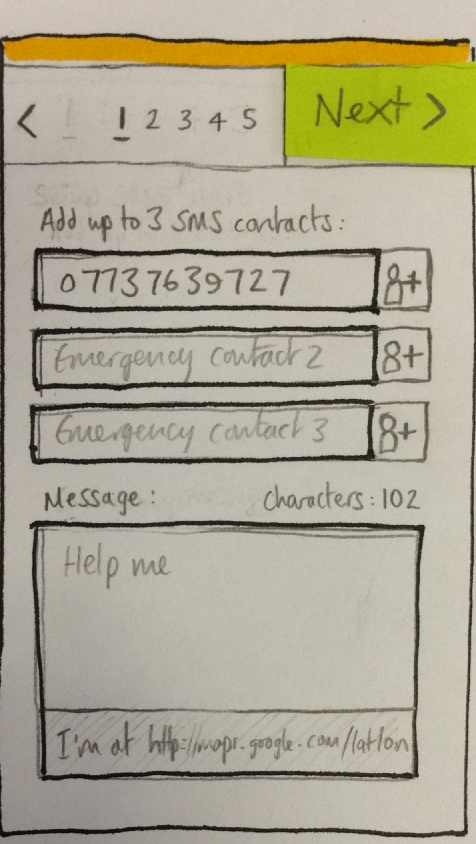 < 1 2 3 4 5 Next >
Add up to 3 SMS contacts:
07737639727 8+
Emergency contact 2 8+
Emergency contact 3 8+
Message: Characters: 102
Help me
I'm at http://maps.google.com/lat/lon